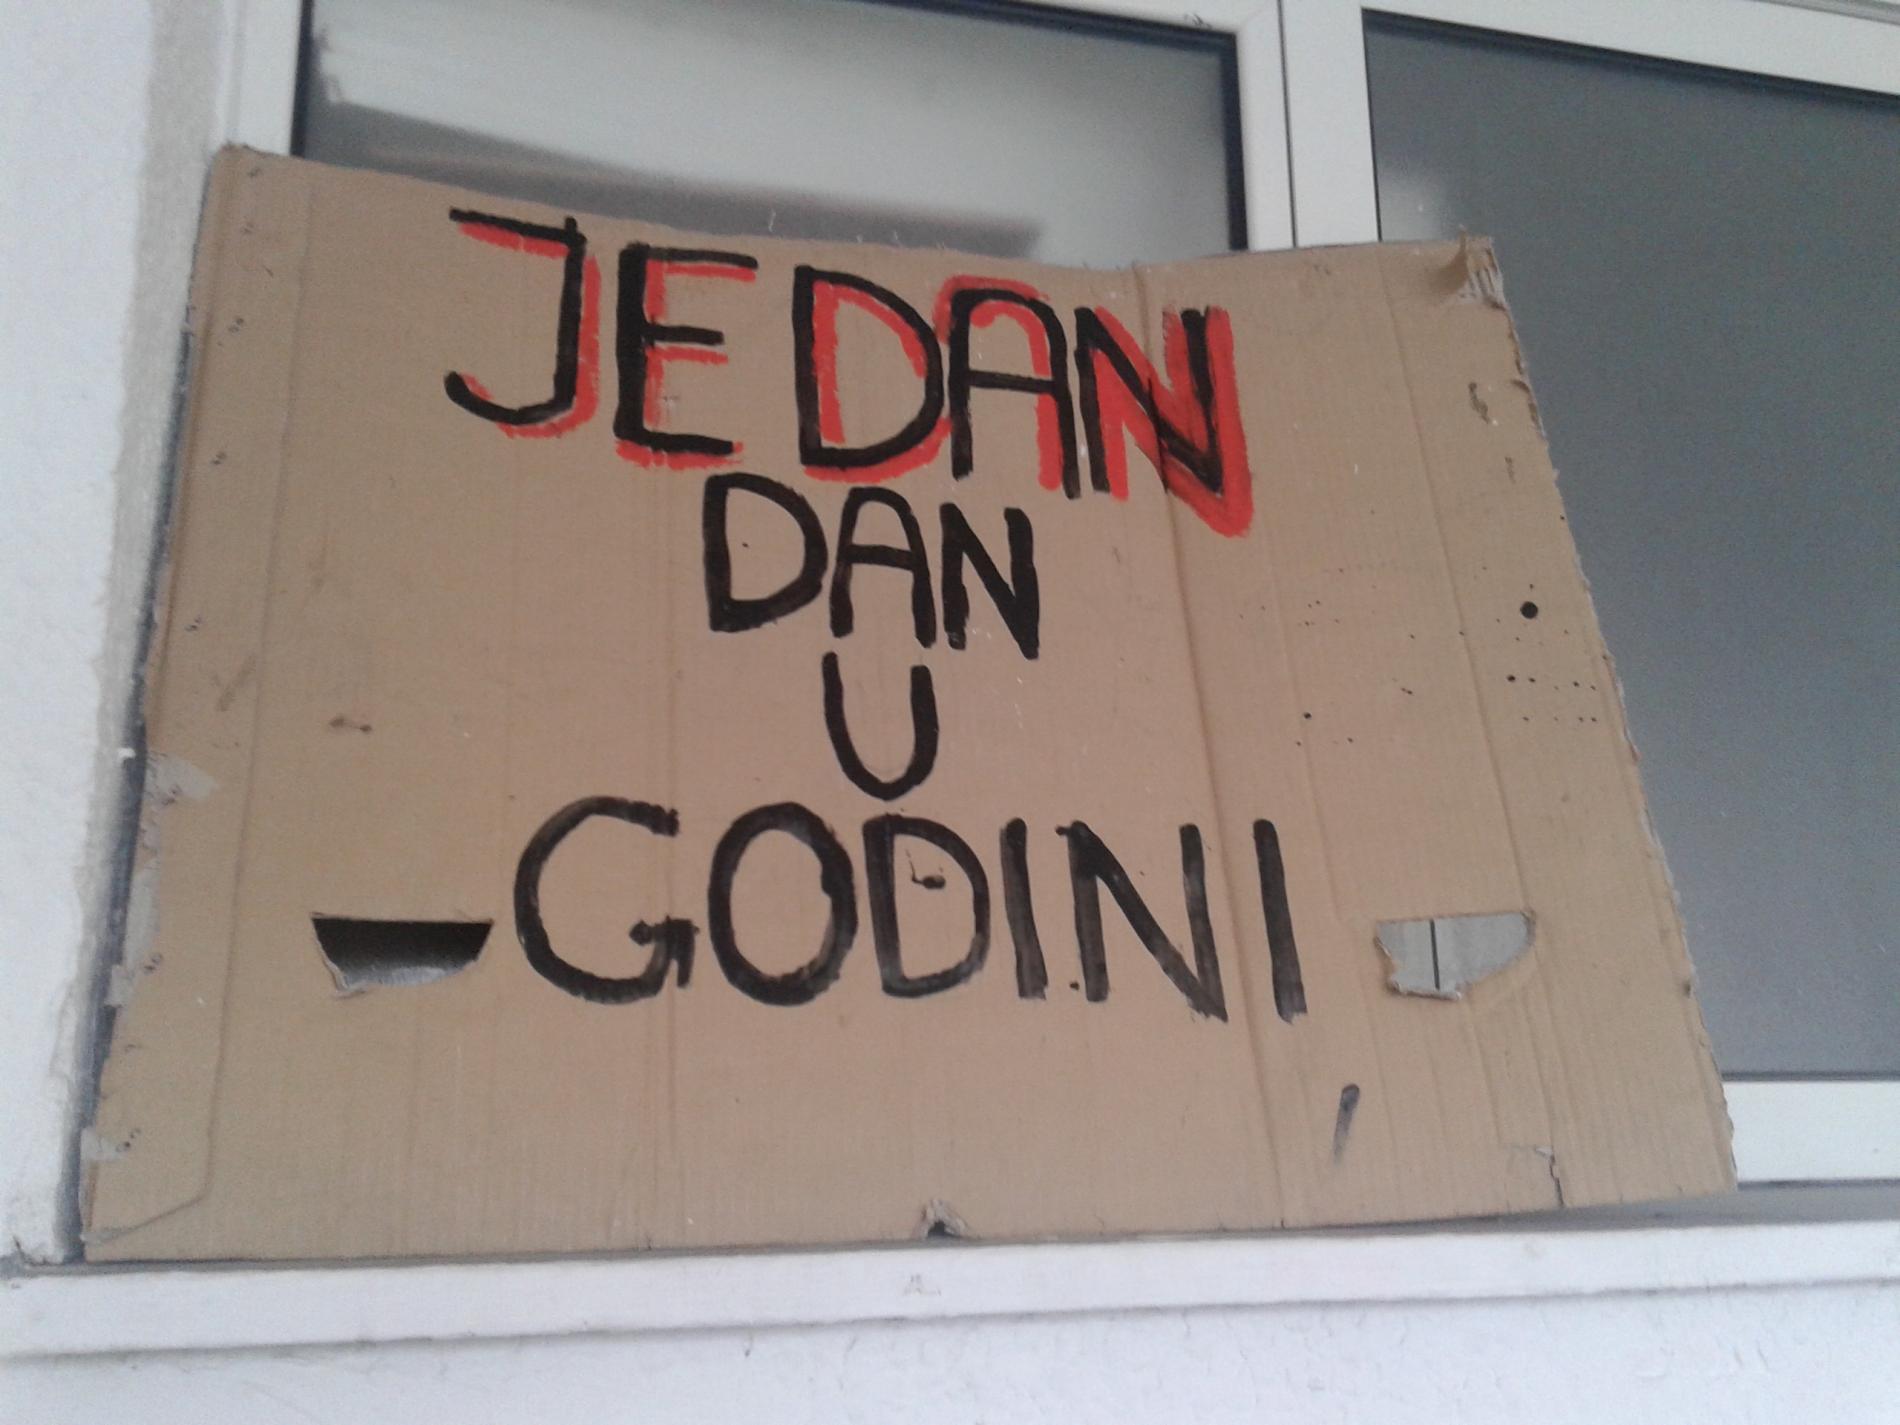 JEDAN
DAN
U
GODINI